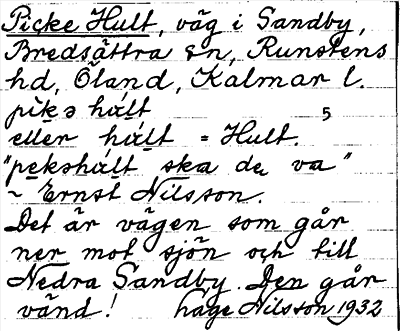 Picke Hult, väg i Sandby,
Bredsättra sn, Runstens
hd, Öland, Kalmar l.
pikə hult 5
eller hult = Hult.
"pekshult ska de va"
~ Ernst Nilsson.
Det är vägen som går
ner mot sjön och till
Nedra Sandby. Den går
vänd! Hage Nilsson 1932